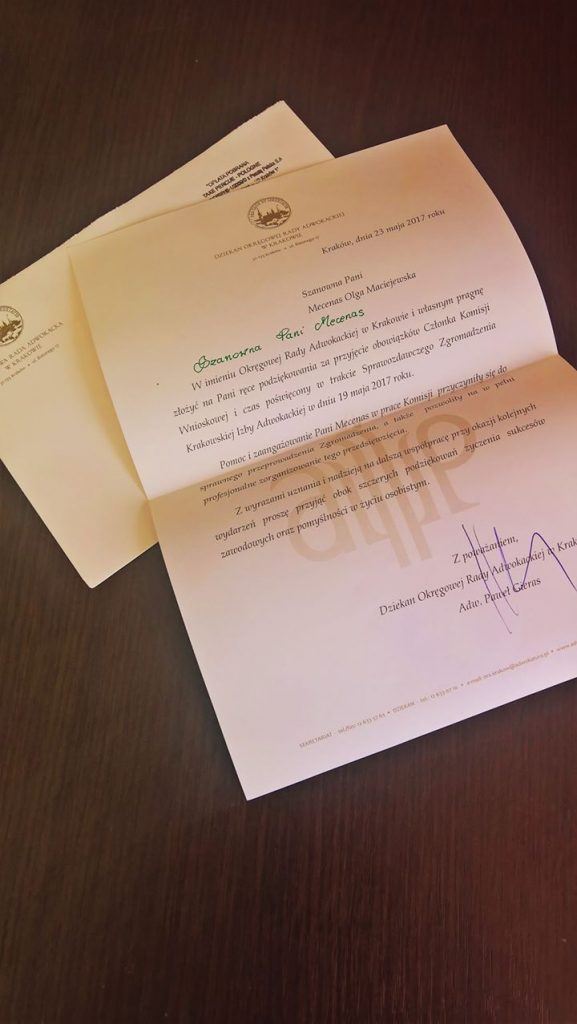 "OPŁATA POBRANA
TAXE PERÇUE - POLOGNE
DZIEKAN OKRĘGOWEJ RADY ADWOKACKIEJ
W KRAKOWIE
Kraków, dnia 23 maja 2017 roku
RADA ADWOKACKA
W KRAKOWIE
Szanowna Pani
Mecenas Olga Maciejewska
Szanowna Pani Mecenas
W imieniu Okręgowej Rady Adwokackiej w Krakowie i własnym pragnę
złożyć na Pani ręce podziękowania za przyjęcie obowiązków Członka Komisji
Wnioskowej i czas poświęcony w trakcie Sprawozdawczego Zgromadzenia
Krakowskiej Izby Adwokackiej w dniu 19 maja 2017 roku.
Pomoc i zaangażowanie Pani Mecenas w prace Komisji przyczyniły się do
sprawnego przeprowadzenia Zgromadzenia, a także pozwoliły na w pełni
profesjonalne zorganizowanie tego przedsięwzięcia.
Z wyrazami uznania i nadzieją na dalszą współpracę przy okazji kolejnych
wydarzeń proszę przyjąć obok szczerych podziękowań życzenia sukcesów
zawodowych oraz pomyślności w życiu osobistym.
Z poważaniem,
Dziekan Okręgowej Rady Adwokackiej w Krak
Adw. Paweł Gieras
SEKRETARIAT - tel./fax: 12 633 57 63 • DZIEKAN - tel.: 12 633 07 10 • e-mail: ora.krakow@adwokatura.pl • www.ad